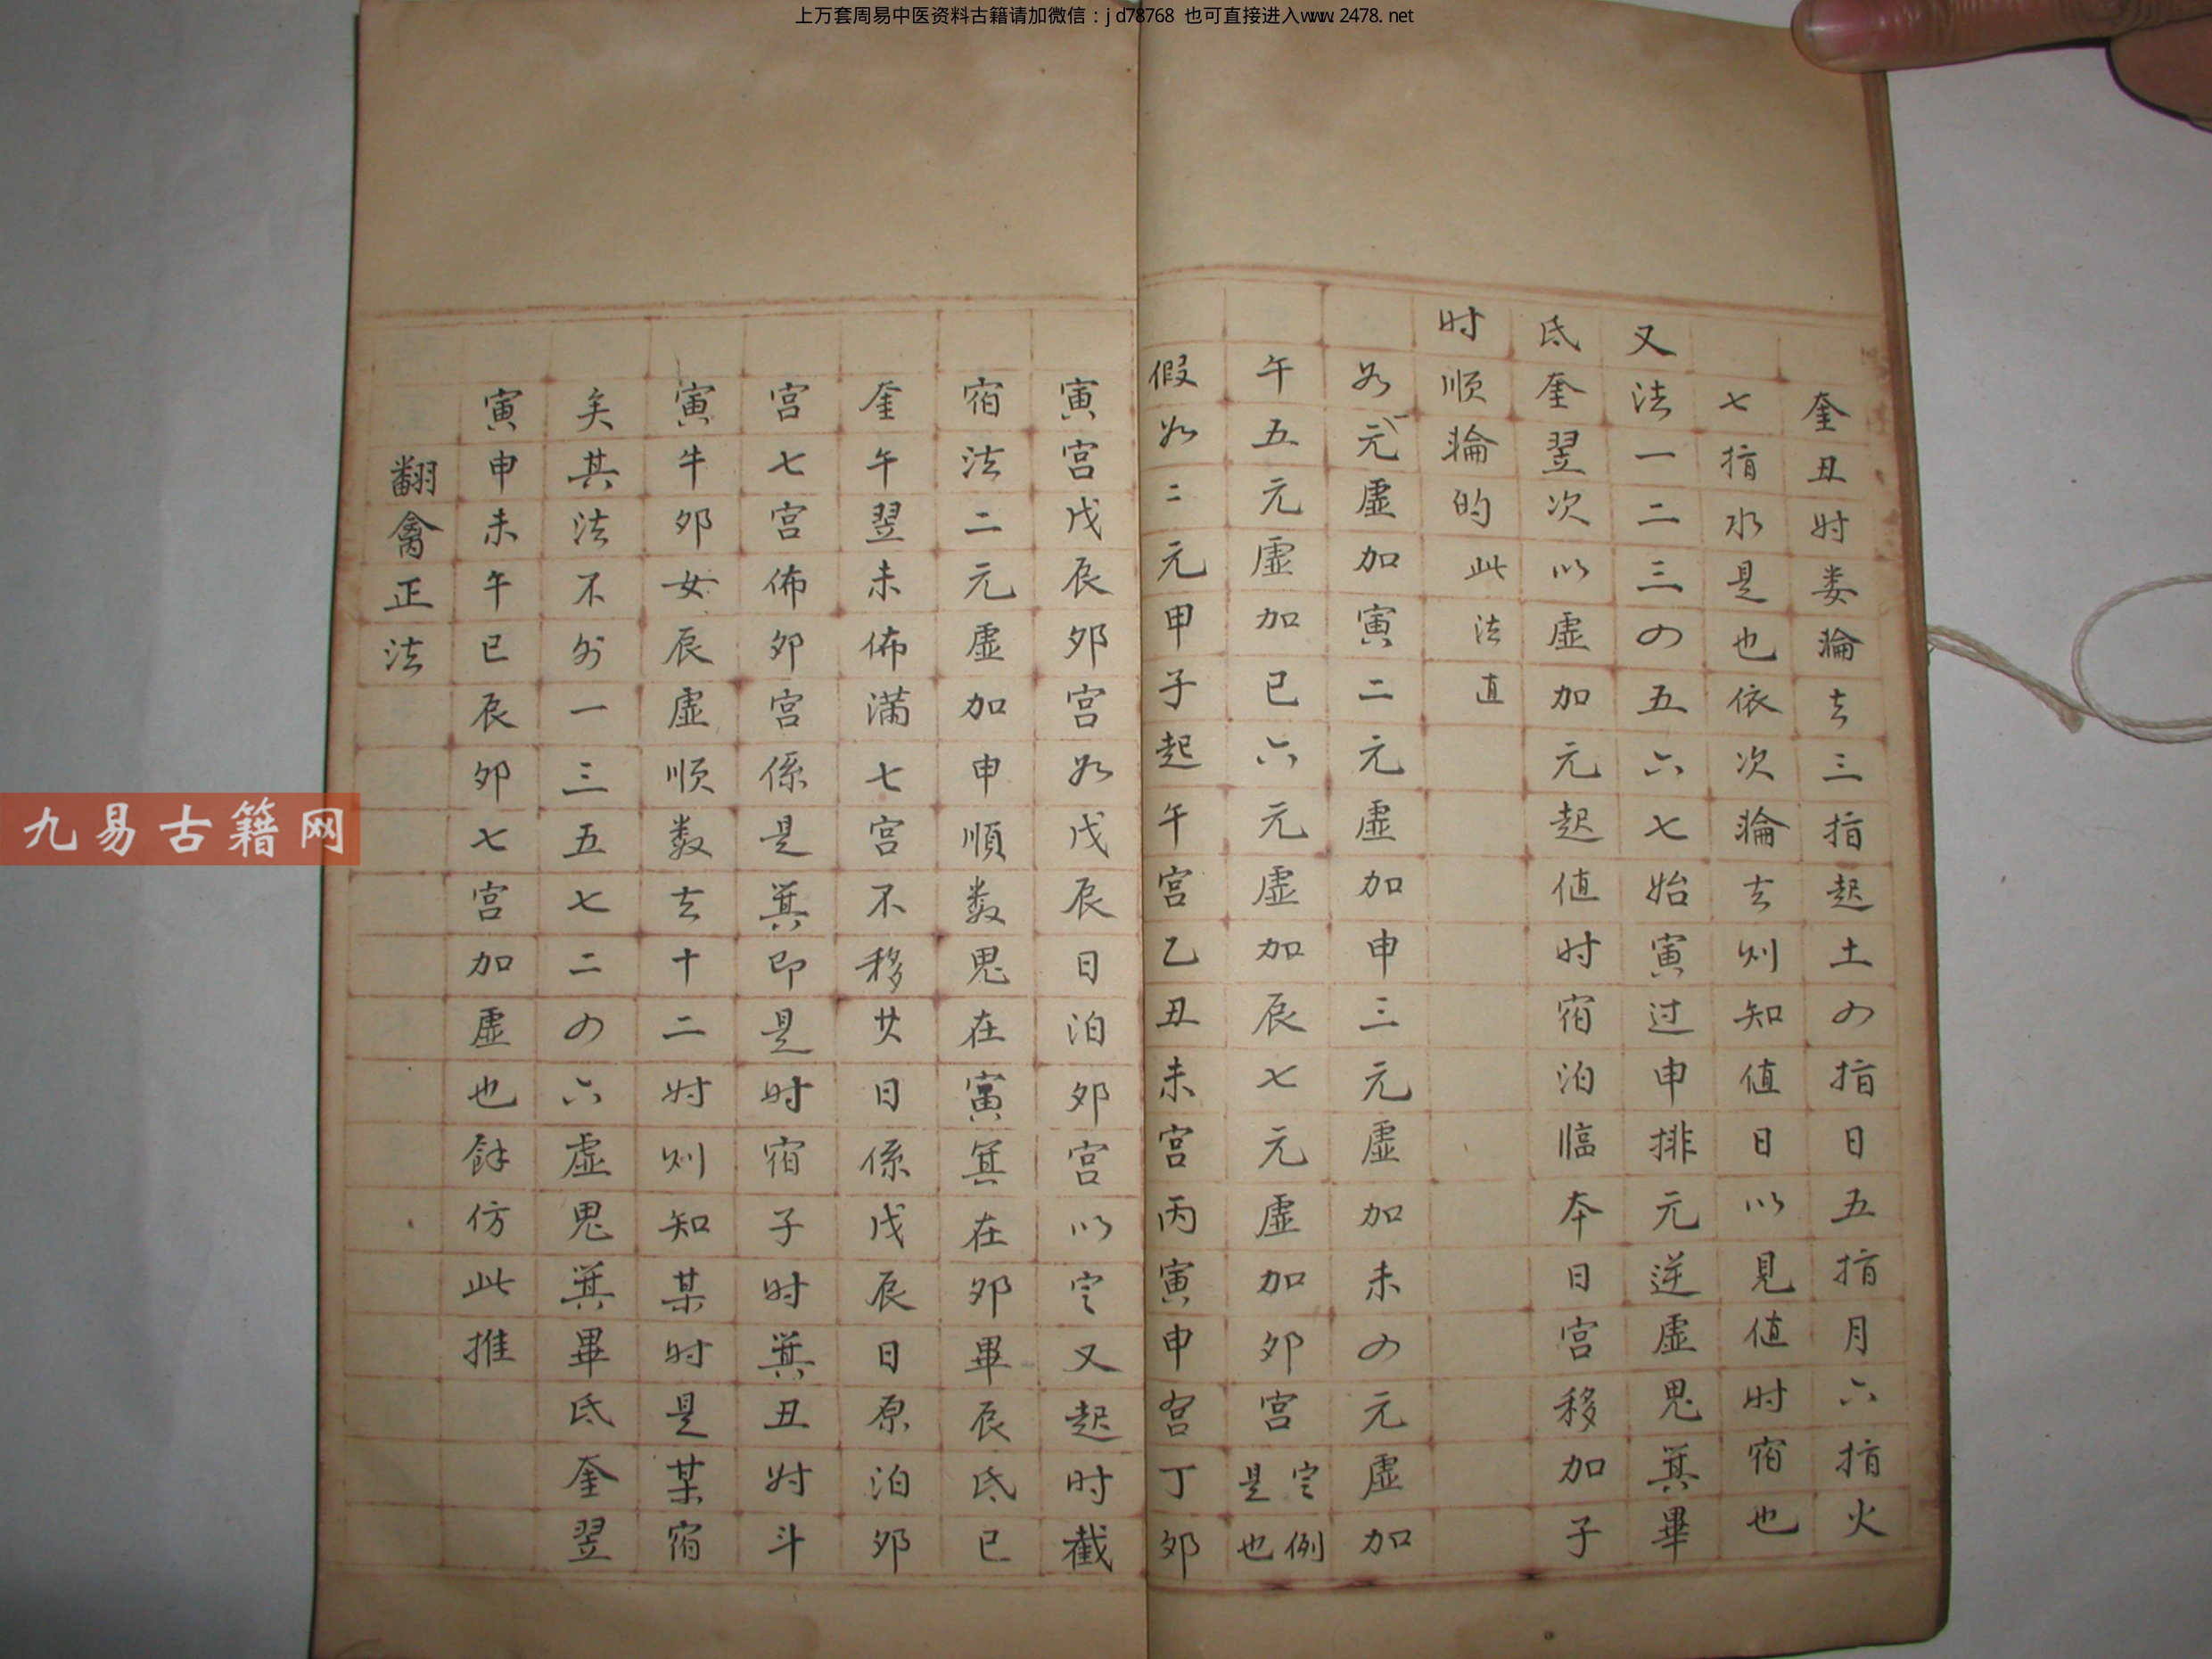 上万套周易中医资料古籍请加微信：jd78768 也可直接进入www.2478.net
奎丑时娄輪去三指起土四指日五指月六指火
七指水是也依次輪去则知值日以見值时宿也
又法一二三四五六七始寅过申排元逆虚鬼箕畢
氐奎翌次以虚加元起值时宿泊临本日宫移加子
时顺輪的此法直
如一元虚加寅二元虚加申三元虚加未四元虚加
午五元虚加巳六元虚加辰七元虚加卯宫定例是也
假如二元甲子起午宫乙丑未宫丙寅申宫丁卯
寅宫戊辰卯宫如戊辰日泊卯宫以定又起时截
宿法二元虚加申順数鬼在寅箕在卯畢辰氐巳
奎午翌未佈满七宫不移廿日係戊辰日原泊卯
宫七宫佈卯宫係是箕即是时宿子时箕丑时斗
寅牛卯女辰虚顺数去十二时则知某时是某宿
矣其法不外一三五七二四六虚鬼箕畢氐奎翌
寅申未午巳辰卯七宫加虚也餘仿此推
翻禽正法
九易古籍网